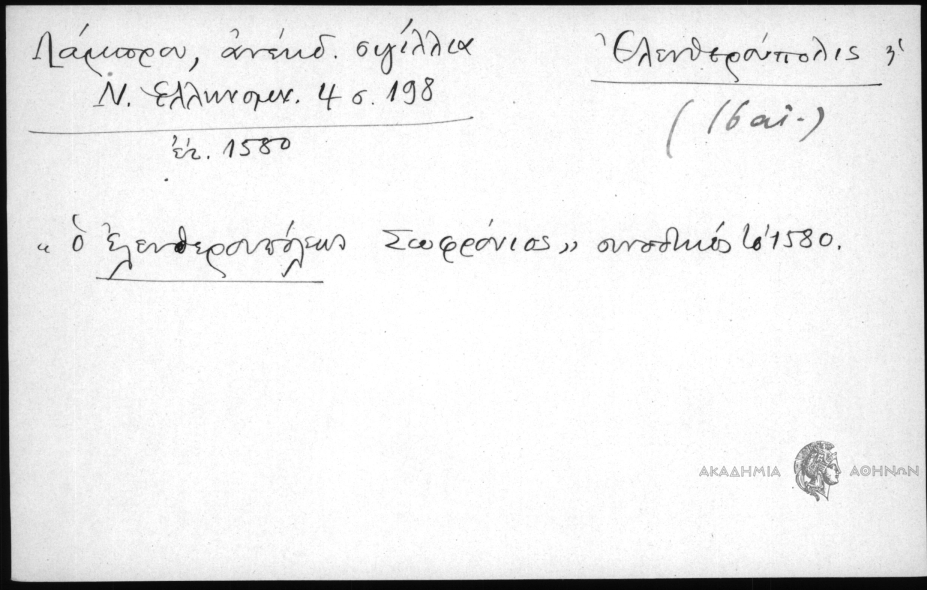 Λάμπρου, ἀνέκδ. σιγίλλια
Ν. Ἑλληνομν. 4 σ. 198
ἔτ. 1580
Ἐλευθερούπολις
(16 αἰ.)
"ὁ Ἐλευθερουπόλεως Σωφρόνιος" συνοδικῶς 1580.
ΑΚΑΔΗΜΙΑ ΑΘΗΝΩΝ